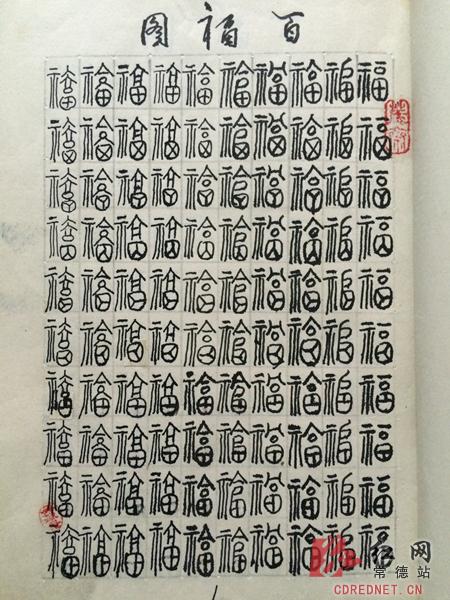 百福图
福福福福福福福福福福
福福福福福福福福福福
福福福福福福福福福福
福福福福福福福福福福
福福福福福福福福福福
福福福福福福福福福福
福福福福福福福福福福
福福福福福福福福福福
福福福福福福福福福福
福福福福福福福福福福
红网
常德站
CDREDNET.CN